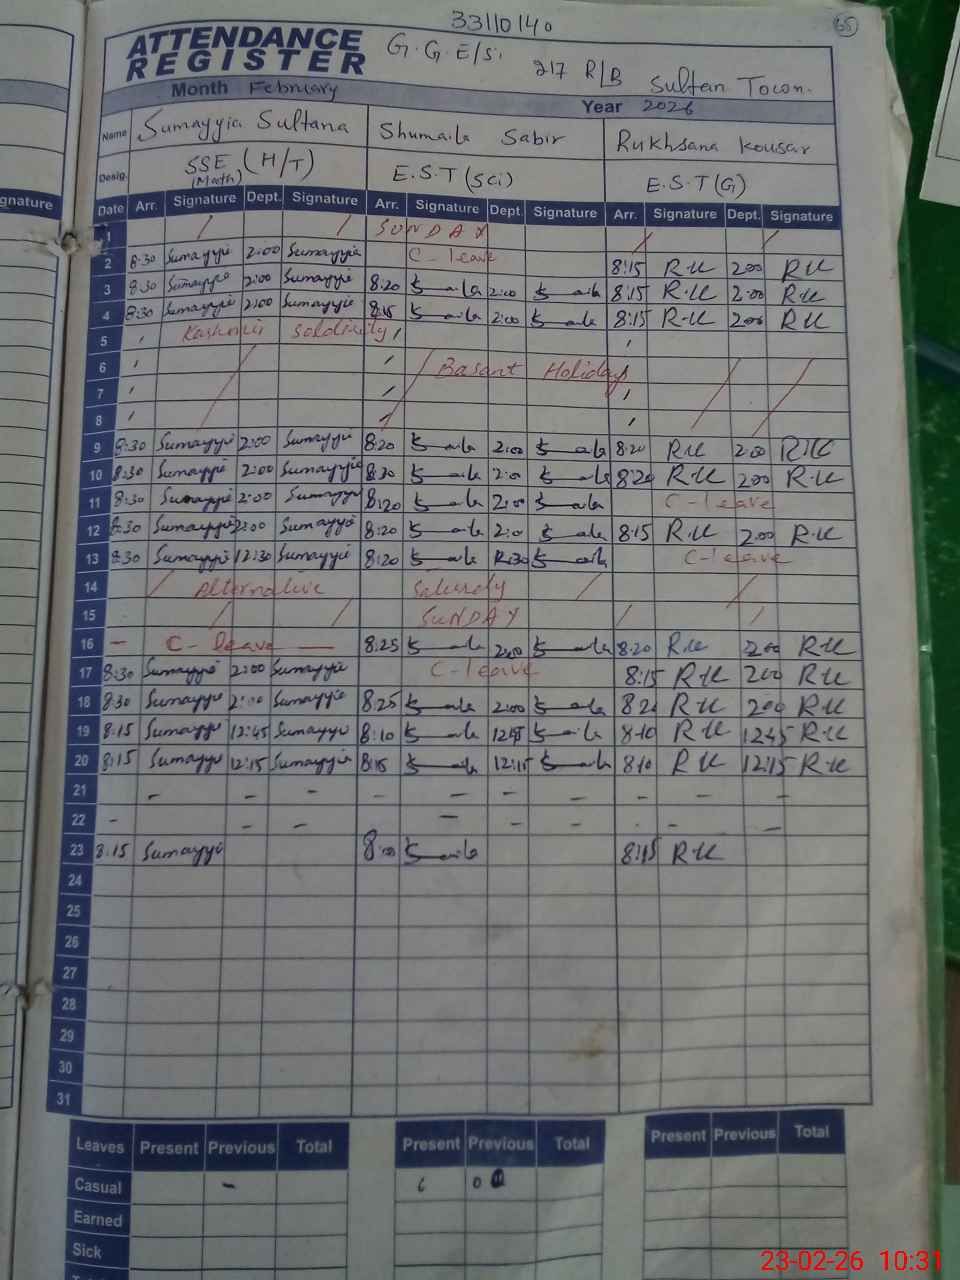 33110140
65
ATTENDANCE REGISTER
G.G.E/S. 217 R/B Sultan Town.
Month February
Year 2026
Name Sumayyia Sultana Shumaila Sabir Rukhsana Kousar
Desig. SSE (H/T) (Math) E.S.T (Sci) E.S.T (G)
gnature
Date Arr. Signature Dept. Signature Arr. Signature Dept. Signature Arr. Signature Dept. Signature
1 SUNDAY
2 8:30 Sumayyie 2:00 Sumayyie C-leave 8:15 R.K 2:00 RK
3 8:30 Sumayyie 2:00 Sumayyie 8:20 2:00 8:15 R.K 2:00 RK
4 8:30 Sumayyie 2:00 Sumayyie 8:15 2:00 8:15 R.K 2:00 RK
5 Kashmir
6 Basant Holiday
7
8
9 8:30 Sumayyie 2:00 Sumayyie 8:20 2:00 8:20 RK 2:00 RK
10 8:30 Sumayyie 2:00 Sumayyie 2:00 8:20 RK 2:00 R.K
11 8:30 Sumayyie 2:00 Sumayyie 8:20 2:00 C-leave
12 8:30 Sumayyie 2:00 Sumayyie 8:20 2:00 8:15 RK 2:00 R.K
13 8:30 Sumayyie 12:30 Sumayyie 8:20 12:30 C-leave
14 Alternative Saturday
15 SUNDAY
16 C-leave 8:25 2:00 8:20 RK 2:00 RK
17 8:30 Sumayyie 2:00 Sumayyie C-leave 8:15 RK 2:00 RK
18 8:30 Sumayyie 2:00 Sumayyie 8:25 2:00 RK 2:00 RK
19 8:15 Sumayyie 12:45 Sumayyie 8:10 12:45 8:10 RK 12:45 RK
20 8:15 Sumayyie 12:15 Sumayyie 8:15 12:15 8:10 RK 12:15 RK
21
22
23 8:15 Sumayyie 8:00 8:15 RK
24
25
26
27
28
29
30
31
Leaves Present Previous Total Present Previous Total Present Previous Total
Casual
Earned
Sick
23-02-26 10:31